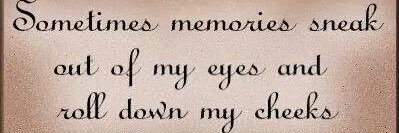 Sometimes memories sneak
out of my eyes and
roll down my cheeks